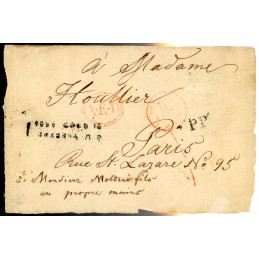 à Madame
Houllier
PP
Paris
Rue St. Lazare No. 95
à Monsieur fils
en propre mains